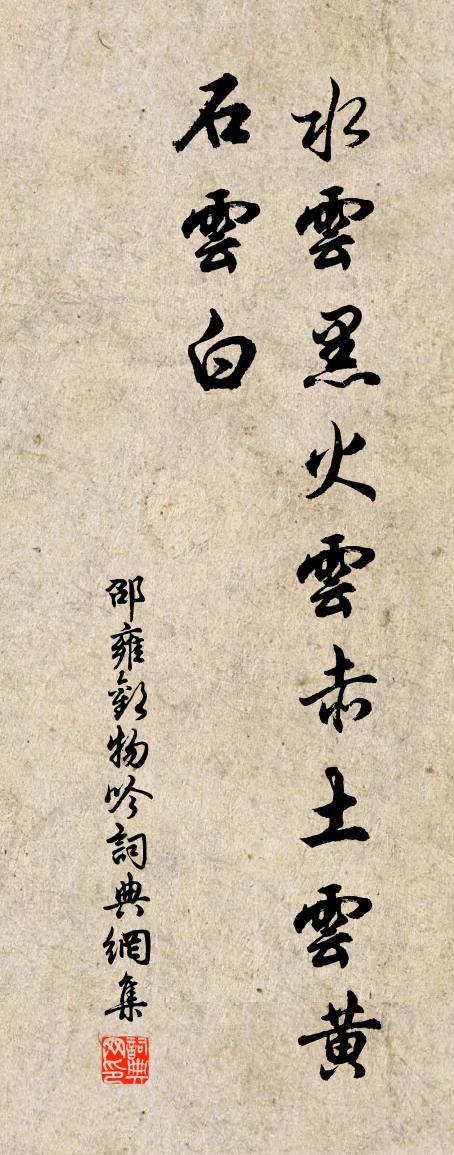 水雲黑火雲赤土雲黃
石雲白
邵雍觀物吟詞典網集
詞典網印